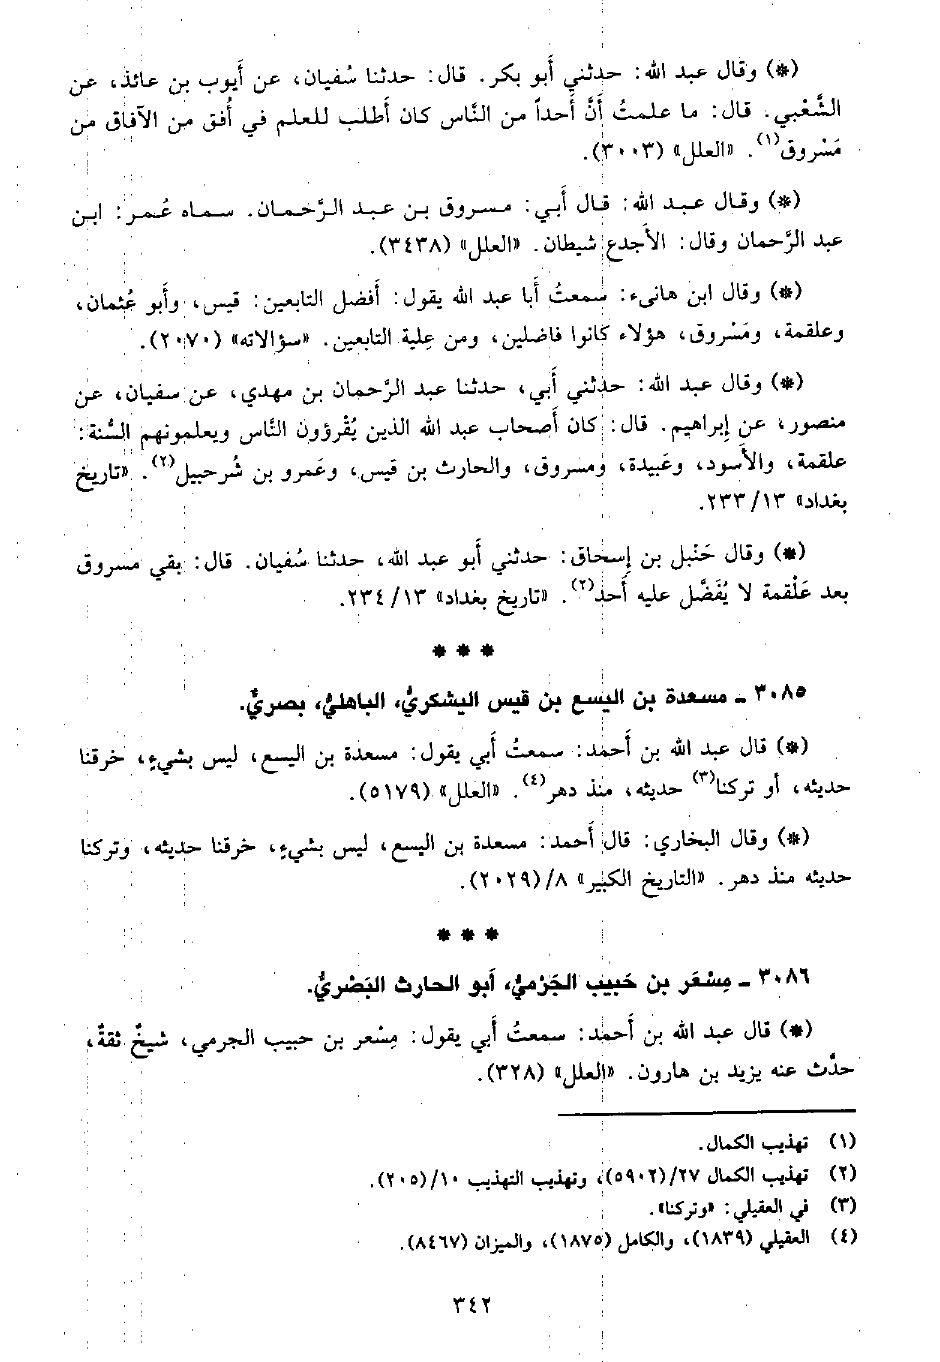 (*) وقال عبد الله: حدثني أَبو بكر. قال: حدثنا سُفيان، عن أَيوب بن عائذ، عن
الشَّعْبي. قال: ما علمتُ أَنَّ أَحداً من النَّاس كان أَطلب للعلم في أُفق من الآفاق من
مَسْروق(١). «العلل» (٣٠٠٣).
(*) وقال عبد الله: قال أَبي: مسروق بن عبد الرَّحمان. سماه عُمر: ابن
عبد الرَّحمان وقال: الأَجدع شيطان. «العلل» (٣٤٣٨).
(*) وقال ابن هانىء: سمعتُ أَبا عبد الله يقول: أَفضل التابعين: قيس، وأَبو عُثمان،
وعلقمة، ومَسْروق، هؤلاء كانوا فاضلين، ومن عِلية التابعين. «سؤالاته» (٢٠٧٠).
(*) وقال عبد الله: حدثني أَبي، حدثنا عبد الرَّحمان بن مهدي، عن سفيان، عن
منصور، عن إِبراهيم. قال: كان أَصحاب عبد الله الذين يُقْرؤون النَّاس ويعلمونهم السُّنة:
علقمة، والأَسود، وعَبيدة، ومسروق، والحارث بن قيس، وعَمرو بن شُرحبيل(٢). «تاريخ
بغداد» ١٣/ ٢٣٣.
(*) وقال حَنْبل بن إِسحاق: حدثني أَبو عبد الله، حدثنا سُفيان. قال: بقي مسروق
بعد عَلْقمة لا يُفَضَّل عليه أَحدٌ(٢). «تاريخ بغداد» ١٣/ ٢٣٤.
* * *
٣٠٨٥ ـ مسعدة بن اليسع بن قيس اليشكريُّ، الباهليُّ، بصريٌّ.
(*) قال عبد الله بن أَحمد: سمعتُ أَبي يقول: مسعدة بن اليسع، ليس بشيءٍ، خرقنا
حديثه، أو تركنا(٣) حديثه، منذ دهر(٤). «العلل» (٥١٧٩).
(*) وقال البخاري: قال أَحمد: مسعدة بن اليسع، ليس بشيءٍ، خرقنا حديثه، وتركنا
حديثه منذ دهر. «التاريخ الكبير» ٨/(٢٠٢٩).
* * *
٣٠٨٦ ـ مِسْعَر بن حَبيب الجَرْميُّ، أَبو الحارث البَصْريُّ.
(*) قال عبد الله بن أَحمد: سمعتُ أَبي يقول: مِسْعر بن حبيب الجرمي، شيخٌ ثقةٌ،
حدَّث عنه يزيد بن هارون. «العلل» (٣٢٨).
(١) تهذيب الكمال.
(٢) تهذيب الكمال ٢٧/(٥٩٠٢)، وتهذيب التهذيب ١٠/(٢٠٥).
(٣) في العقيلي: «وتركنا».
(٤) العقيلي (١٨٣٩)، والكامل (١٨٧٥)، والميزان (٨٤٦٧).
٣٤٢